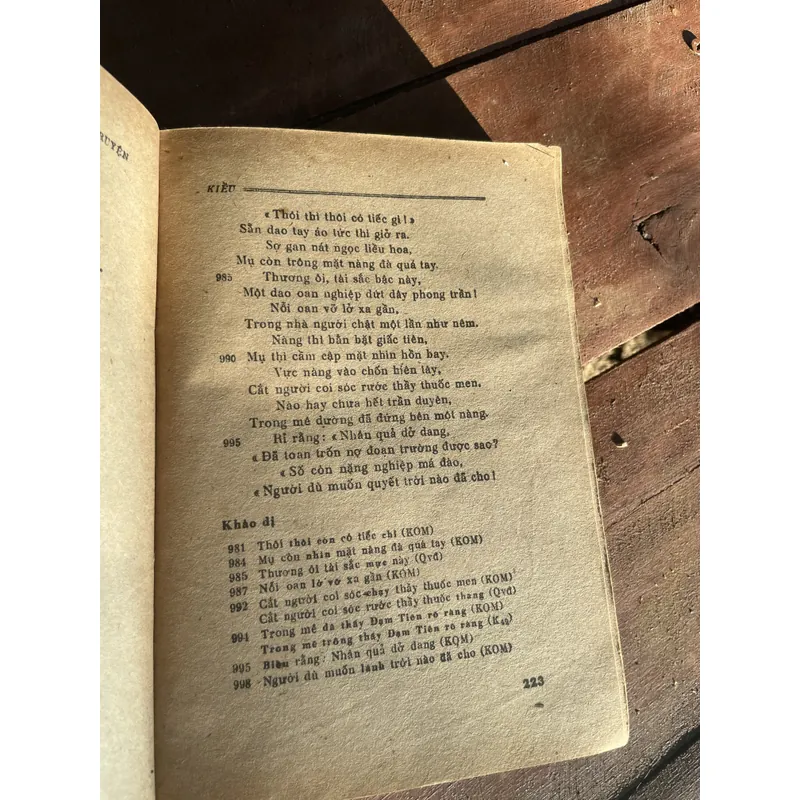 RUYỆN
KIỀU
« Thôi thì thôi có tiếc gì ! »
Sẵn dao tay áo tức thì giở ra.
Sợ gan nát ngọc liều hoa,
Mụ còn trông mặt nàng đà quá tay.
985 Thương ôi, tài sắc bậc này,
Một dao oan nghiệp dứt dây phong trần !
Nỗi oan vỡ lở xa gần,
Trong nhà người chật một lần như nêm.
Nàng thì bằn bặt giấc tiên,
990 Mụ thì cầm cập mặt nhìn hồn bay.
Vực nàng vào chốn hiên tây,
Cắt người coi sóc rước thầy thuốc men.
Nào hay chưa hết trần duyên,
Trong mê dường đã đứng bên một nàng.
995 Rỉ rằng : « Nhân quả dở dang,
« Đã toan trốn nợ đoạn trường được sao ?
« Số còn nặng nghiệp má đào,
« Người dù muốn quyết trời nào đã cho !
Khảo dị
981 Thôi thôi còn có tiếc chi (KOM)
984 Mụ còn nhìn mặt nàng đà quá tay (KOM)
985 Thương ôi tài sắc mực này (Qvđ)
987 Nỗi oan lỡ vở xa gần (KOM)
992 Cắt người coi sóc chạy thầy thuốc men (KOM)
Cắt người coi sóc rước thầy thuốc thang (Qvđ)
994 Trong mê đã thấy Đạm Tiên rõ ràng (KOM)
Trong mê trông thấy Đạm Tiên rõ ràng
995 Bảo rằng : Nhân quả dở dang (KOM)
998 Người dù muốn lánh trời nào đã cho (KOM)
223